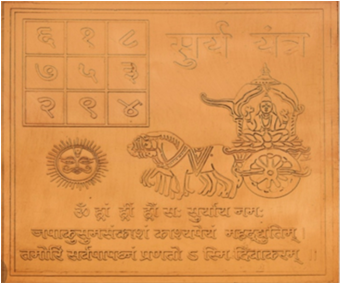 ६ १ ८
७ ५ ३
२ ९ ४
सुर्य यंत्र
ॐ ह्रां ह्रीं ह्रौं स: सुर्याय नम:
जपाकुसुमसंकाशं काश्यवेयं ।
तमोरिं सर्वपापघ्नं प्रणतो ऽ स्मि दिवाकरम् ।।